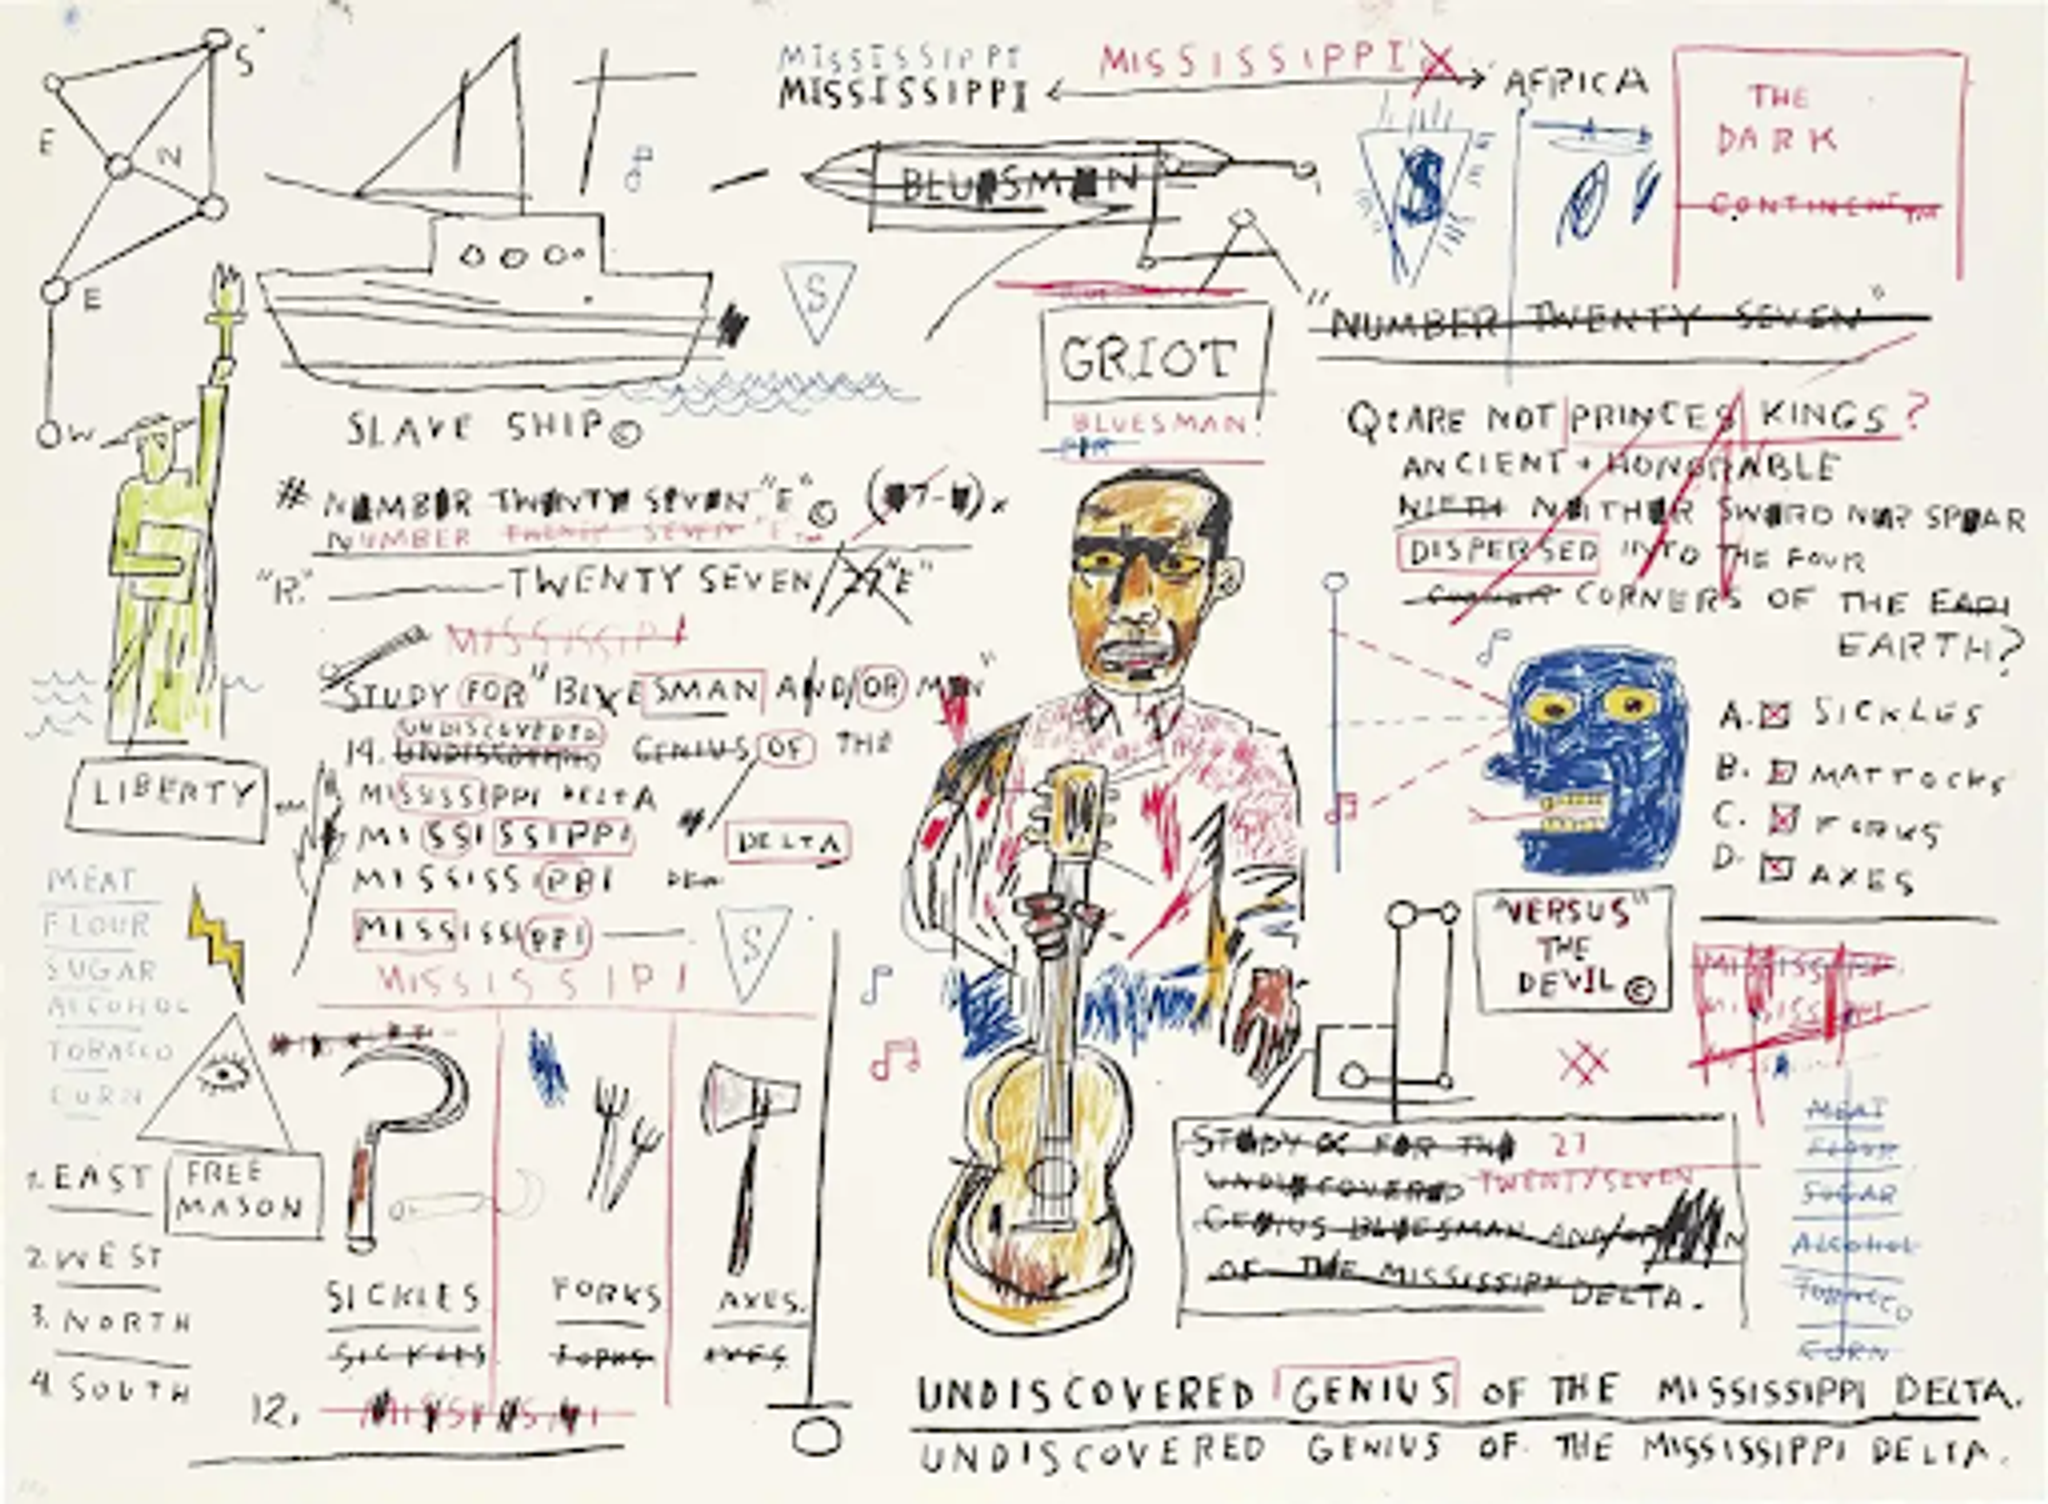 S
E
N
E
W
MISSISSIPPI
MISSISSIPPI
MISSISSIPPI
AFRICA
THE
DARK
CONTINENT TM
BLUESMEN
S
S
"NUMBER TWENTY SEVEN"
GRIOT
BLUESMAN.
SLAVE SHIP©
# NUMBER TWENTY SEVEN "E"©
NUMBER TWENTY SEVEN "E"
"R." TWENTY SEVEN / 27 "E"
MISSISSIPI
STUDY FOR "BLUESMAN AND/OR MEN"
UNDISCOVERED
14. UNDISCOVERED GENIUS OF THE
MISSISSIPPI DELTA
MISSISSIPPI
DELTA
MISSISSIPPI
MISSISSIPPI
S
MISSISSIPI
LIBERTY
MEAT
FLOUR
SUGAR
ALCOHOL
TOBACCO
CORN
FREE
MASON
1. EAST
2. WEST
3. NORTH
4. SOUTH
SICKLES
SICKLES
FORKS
FORKS
AXES.
AXES
12.
Q: ARE NOT PRINCES KINGS?
ANCIENT + HONORABLE
NIETH NEITHER SWORD NOR SPEAR
DISPERSED INTO THE FOUR
CORNERS OF THE EARI
EARTH?
A. SICKLES
B. MATTOCKS
C. FORKS
D. AXES
"VERSUS"
THE
DEVIL©
STUDY FOR THE 27
UNDISCOVERED TWENTYSEVEN
GENIUS BLUESMAN AND/OR
OF THE MISSISSIPPI DELTA.
MEAT
FLOUR
SUGAR
ALCOHOL
TOBACCO
CORN
UNDISCOVERED GENIUS OF THE MISSISSIPPI DELTA.
UNDISCOVERED GENIUS OF THE MISSISSIPPI DELTA.